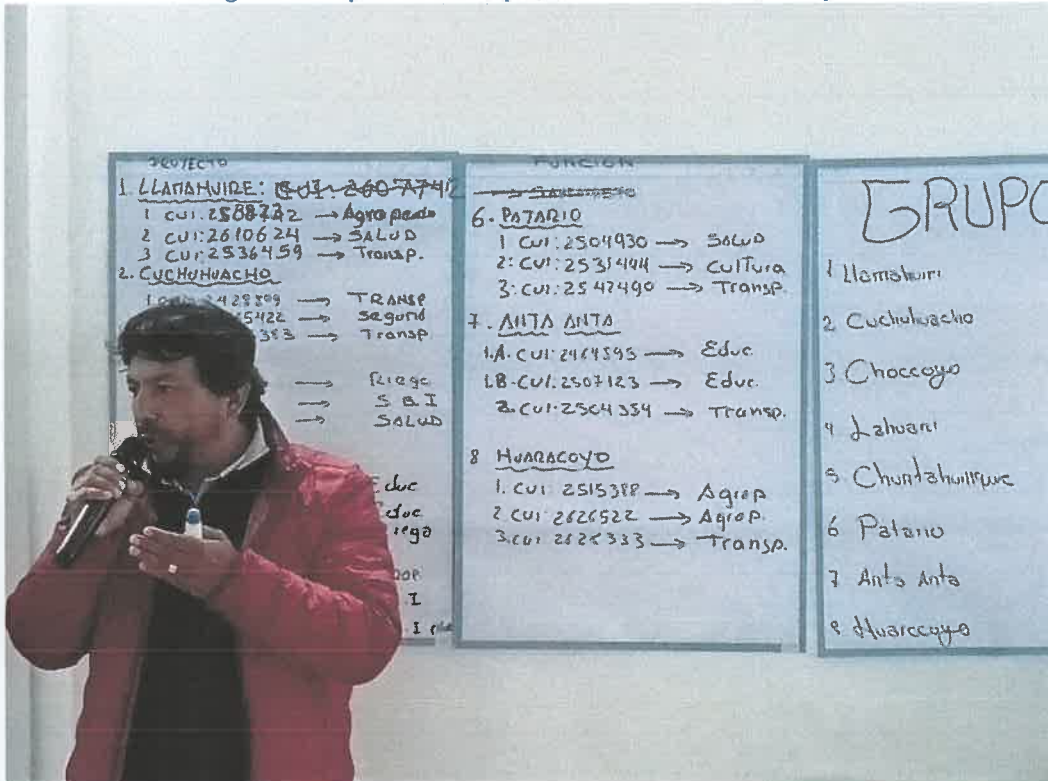 PROYECTO
1. LLAMAHUIRE: CUI: 2607742
1 CUI: 2508732 → Agropedo
2 CUI: 2610624 → SALUD
3 CUI: 2536459 → Transp.
2. CUCHUHUACHO
→ TRANSP
5422 → Segurid
383 → Transp
→ Riego
→ S B I
→ SALUD
Educ
Educ
I
I
FUNCION
6. PATARIO
1 CUI: 2504930 → SALUD
2: CUI: 2531444 → Cultura
3: CUI: 2542490 → Transp.
7. ANTA ANTA
1.A. CUI: 2464595 → Educ.
1.B- CUI: 2507123 → Educ.
2. CUI: 2564354 → Transp.
8 HUARACOYO
1. CUI: 2515388 → Agrop
2. CUI: 2626522 → Agrop.
3. CUI 2625333 → Transp.
GRUPO
1 Llamahuiri
2 Cuchuhuacho
3 Choccoyo
4 Lahuani
5. Chuntahuillque
6 Patario
7 Anta Anta
8 Huarccoyo